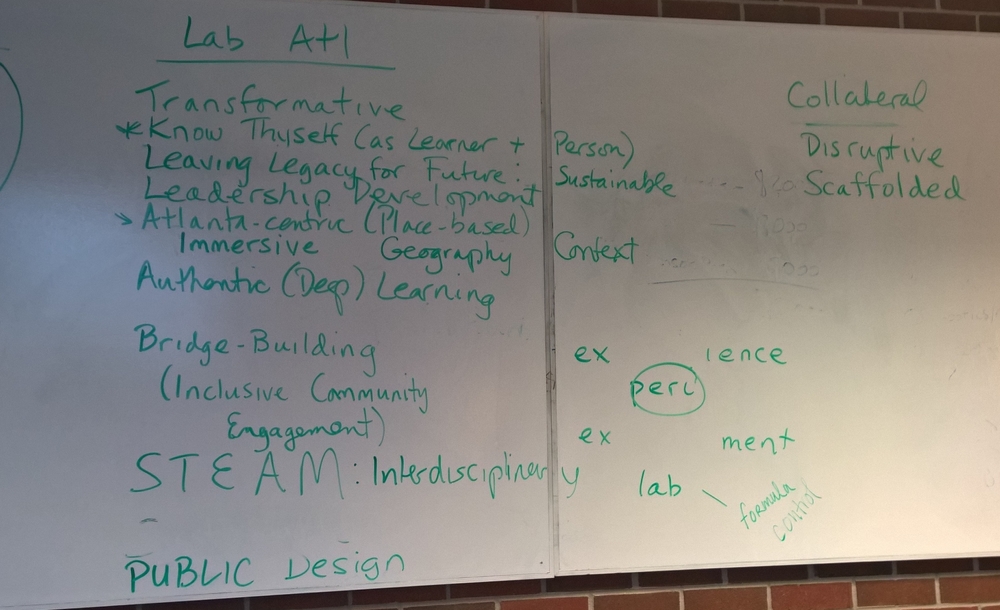 Lab Atl
Transformative
*Know Thyself (as Learner + Person)
Leaving Legacy for Future: Sustainable
Leadership Development
> Atlanta-centric (Place-based)
Immersive Geography Context
Authentic (Deep) Learning
Bridge-Building
(Inclusive Community
Engagement)
STEAM: Interdisciplinary
-
PUBLIC Design
Collateral
Disruptive
Scaffolded
ex ience
peri
ex ment
lab \ formula
control